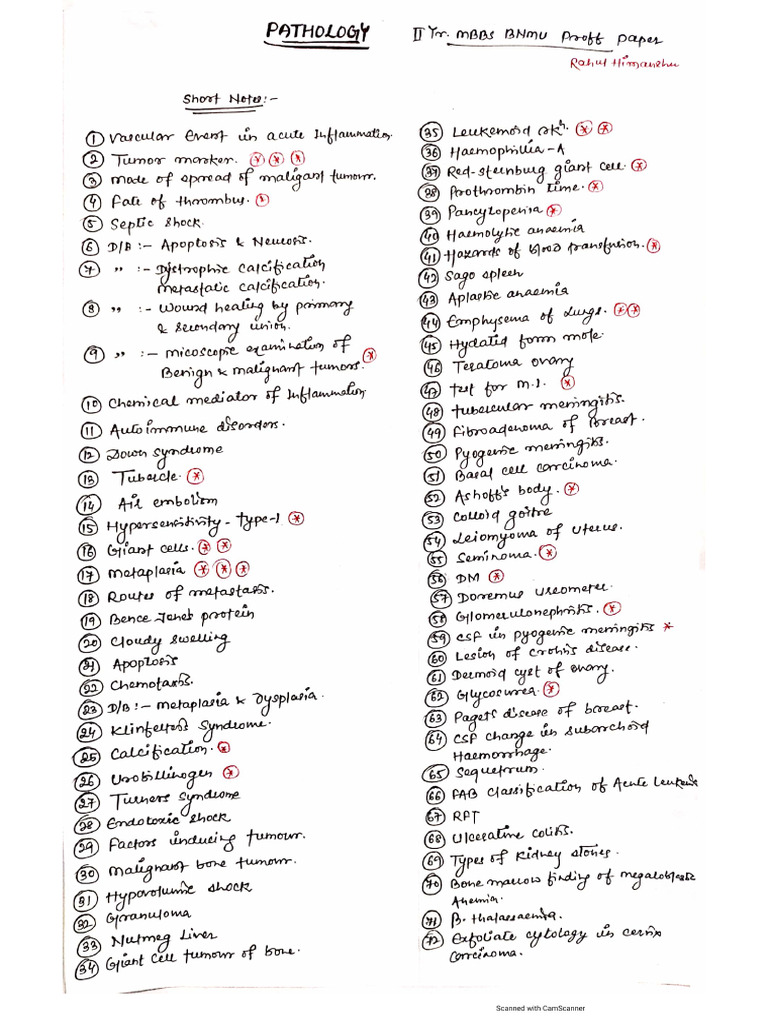 PATHOLOGY II Yr. MBBS BNMU Proff paper
Rahul Himanshu
Short Notes:-
1 Vascular Event in acute Inflammation.
2 Tumor marker. * * *
3 Mode of spread of maligant tumour.
4 Fate of thrombus. *
5 Septic shock.
6 D/B :- Apoptosis & Necrosis.
7 " :- Dystrophic calcification
Metastatic calcification.
8 " :- Wound healing by primary
& secondary union.
9 " :- Micoscopic examination of
Benign & malignant tumors. *
10 Chemical mediator of Inflammation
11 Autoimmune disorders.
12 Down syndrome
13 Tubercle. *
14 Air embolism
15 Hypersensitivity - Type-I *
16 Giant cells. * *
17 Metaplasia * * *
18 Routes of metastasis.
19 Bence Jones protein
20 Cloudy swelling
21 Apoptosis
22 Chemotaxis.
23 D/B :- Metaplasia & Dysplasia.
24 Klinfelters Syndrome.
25 Calcification. *
26 Urobillinogen *
27 Turners Syndrome
28 Endotoxic shock
29 Factors inducing tumour.
30 Malignant bone tumour.
31 Hypovolumic shock
32 Granuloma
33 Nutmeg Liver
34 Giant Cell tumour of bone.
35 Leukemoid rkn. * *
36 Haemophillia - A
37 Red-sternburg giant cell. *
38 Prothrombin time. *
39 Pancytopenia *
40 Haemolytic anaemia
41 Hazards of blood transfusion. *
42 Sago spleen
43 Aplastic anaemia
44 Emphysema of Lungs. * *
45 Hydatid form mole.
46 Teratoma ovary
47 test for M.I. *
48 tubercular meningitis.
49 Fibroadenoma of Breast.
50 Pyogenic meningitis.
51 Basal cell carcinoma.
52 Ashoff's body. *
53 Colloid goitre
54 Leiomyoma of uterus.
55 Seminoma. *
56 DM *
57 Doremus ureometer.
58 Glomerulonephritis. *
59 CSF in pyogenic meningitis *
60 Lesion of Crohn's disease.
61 Dermoid cyst of ovary.
62 Glycosurea. *
63 Pagets disease of breast.
64 CSF change in subarchoid
Haemorrhage.
65 Sequetrum.
66 FAB Classification of Acute Leukemia
67 RFT
68 Ulcerative colitis.
69 Types of kidney stones.
70 Bone marrow finding of megaloblastic
Anemia.
71 B. thalassaemia.
72 Exfoliate cytology in cervix
carcinoma.
Scanned with CamScanner